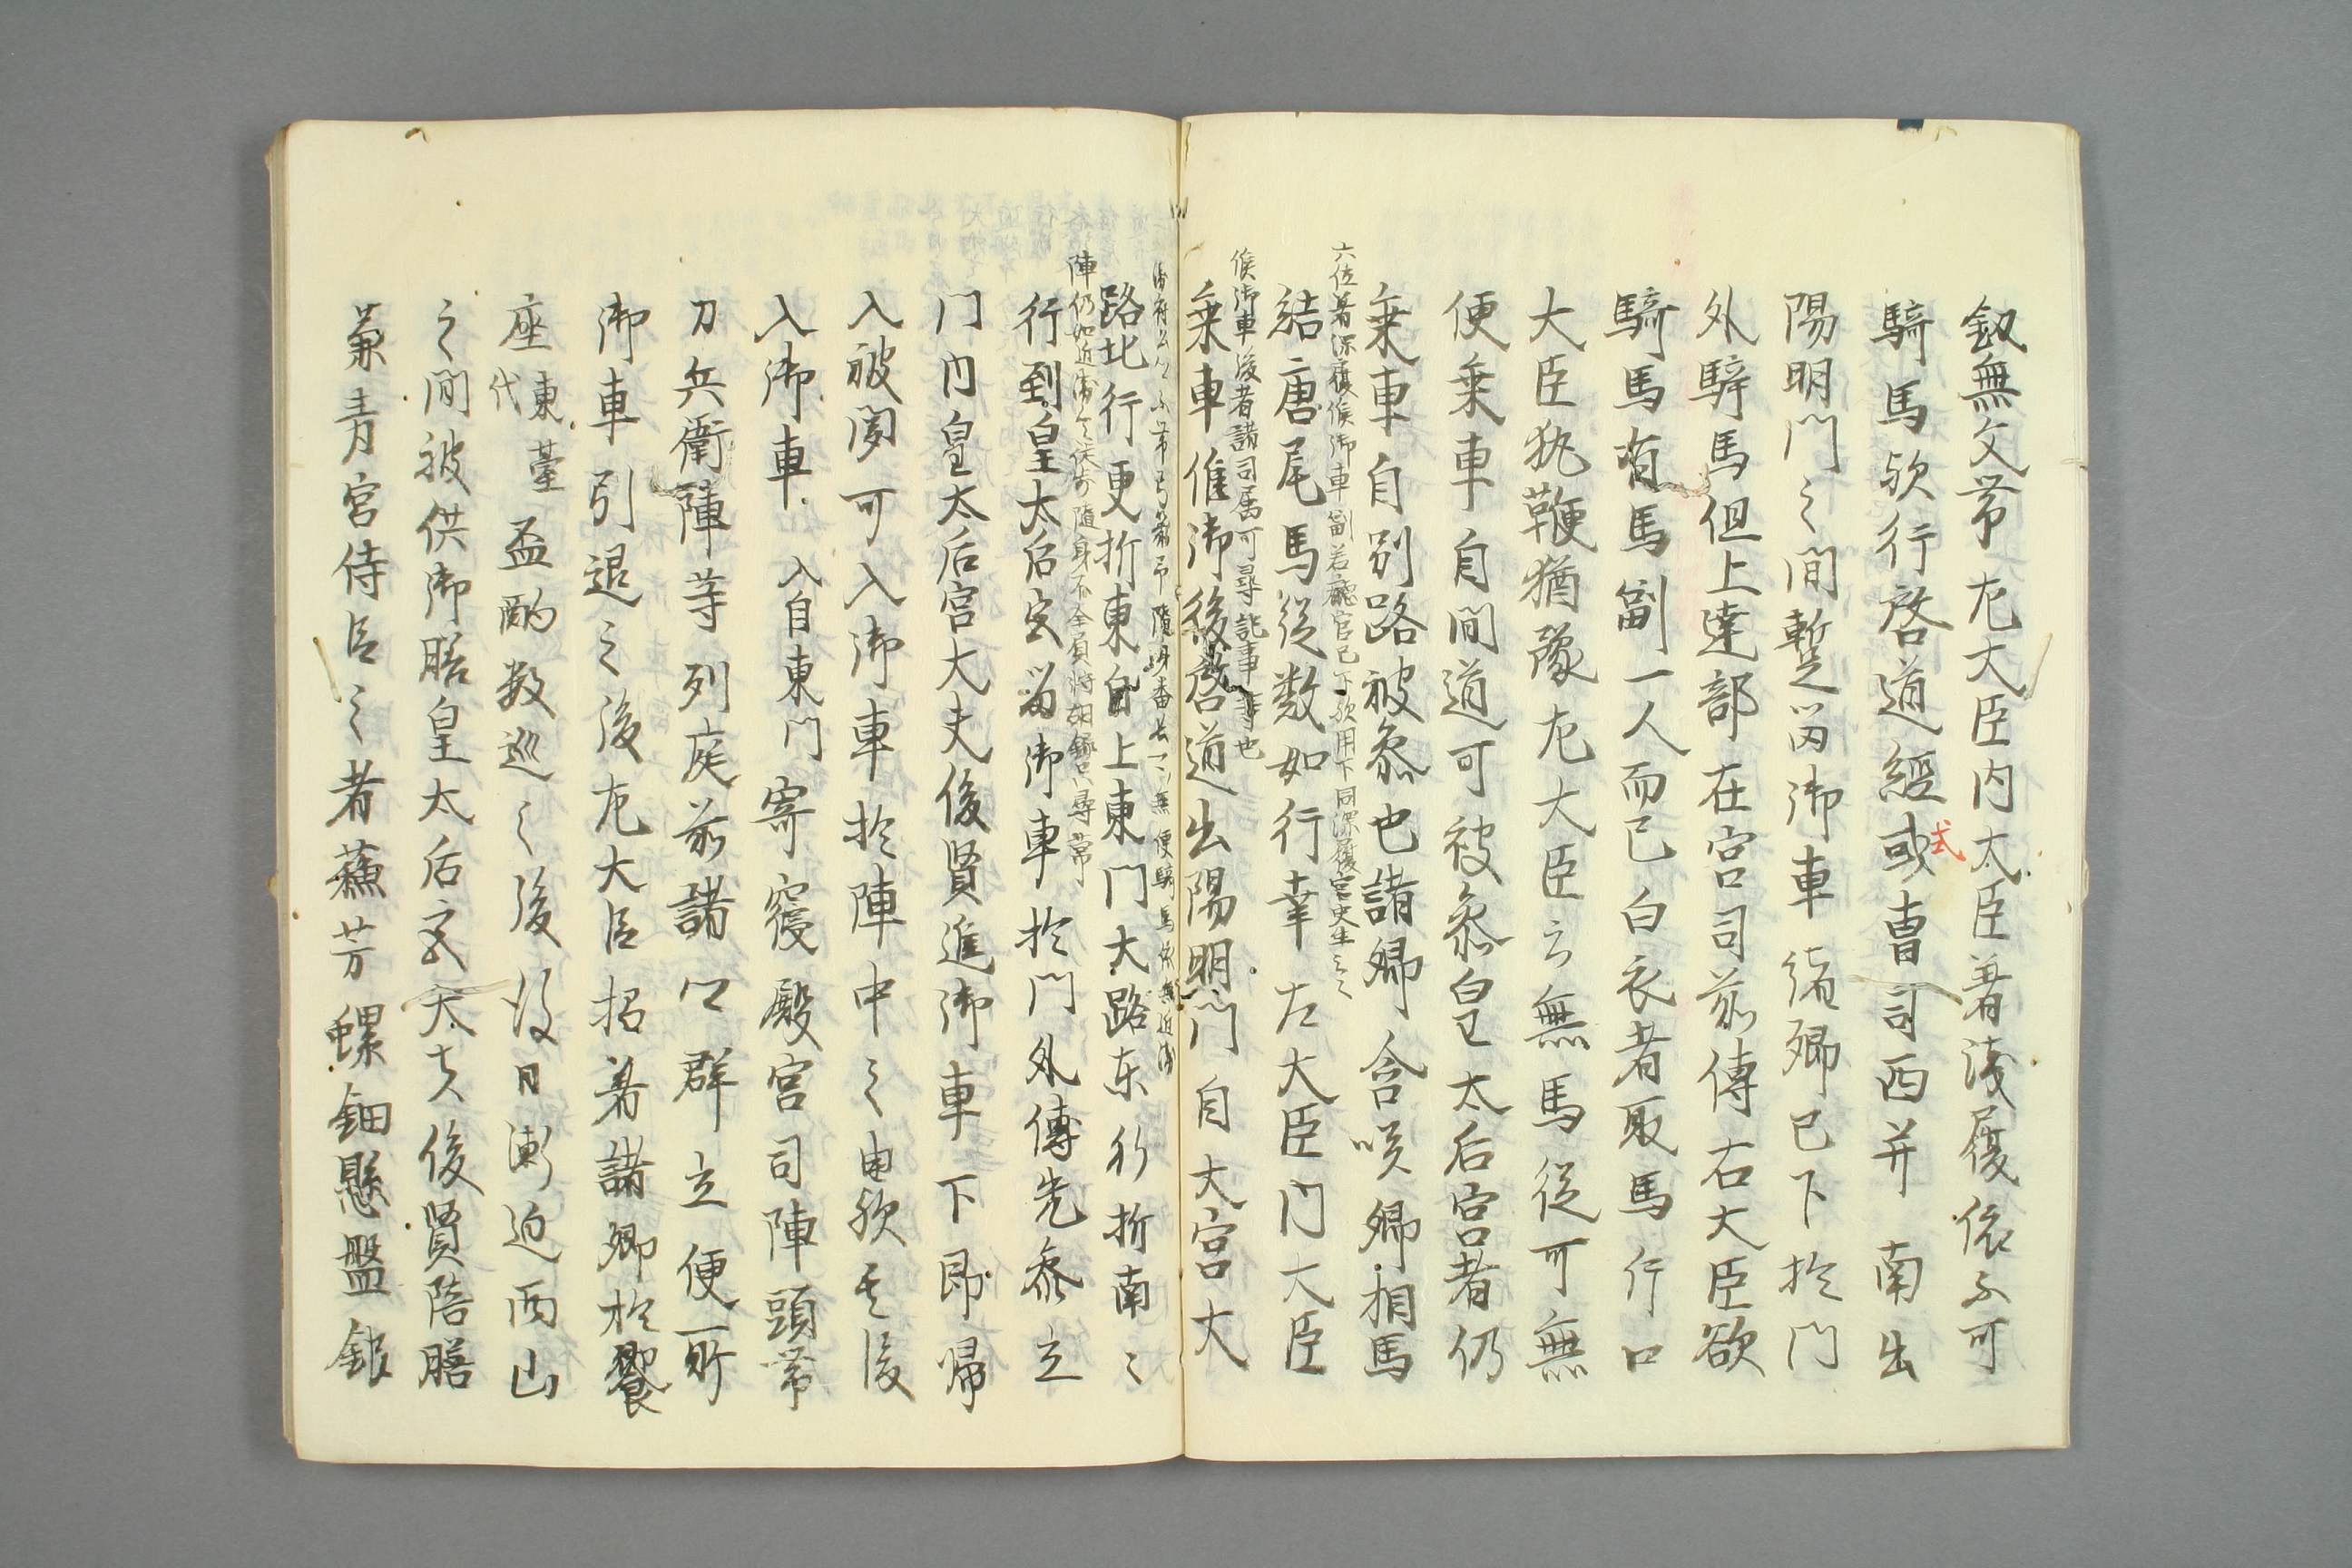 釼無文帯左大臣内大臣着浅履依不可
騎馬欤行啓道経或曹司西并南出
式
陽明門之間暫留御車諸卿已下於門
外騎馬但上達部在宮司前傳右大臣欲
騎馬有馬副一人而已白衣者取馬行口
大臣執鞭猶豫左大臣云無馬従可無
便乗車自間道可被参皇太后宮者仍
乗車自別路被参也諸卿含咲卿相馬
六位着深履候御車副若庁官已下欤用下同深履宮史生云々
結唐尾馬従数如行幸左大臣内大臣
候御車後者諸司属可尋記事等也
乗車候御後啓道出陽明門自大宮大
路北行更折東自上東門大路東行折南々
陣仍如近衛令候于随身不全負将胡籙只尋常
行到皇太后宮留御車於門外傳先参立
門内皇太后宮大夫俊賢進御車下即帰
入被聞可入御車於陣中之由欤其後
入御車入自東門寄寝殿宮司陣頭帯
刀兵衛陣等列庭前諸卿群立便所
御車引退之後左大臣招着諸卿於饗
座東臺代盃酌数巡之後後日漸迫西山
之間被供御膳皇太后宮大夫俊賢陪膳
兼青宮侍臣之者蘓芳螺鈿懸盤銀